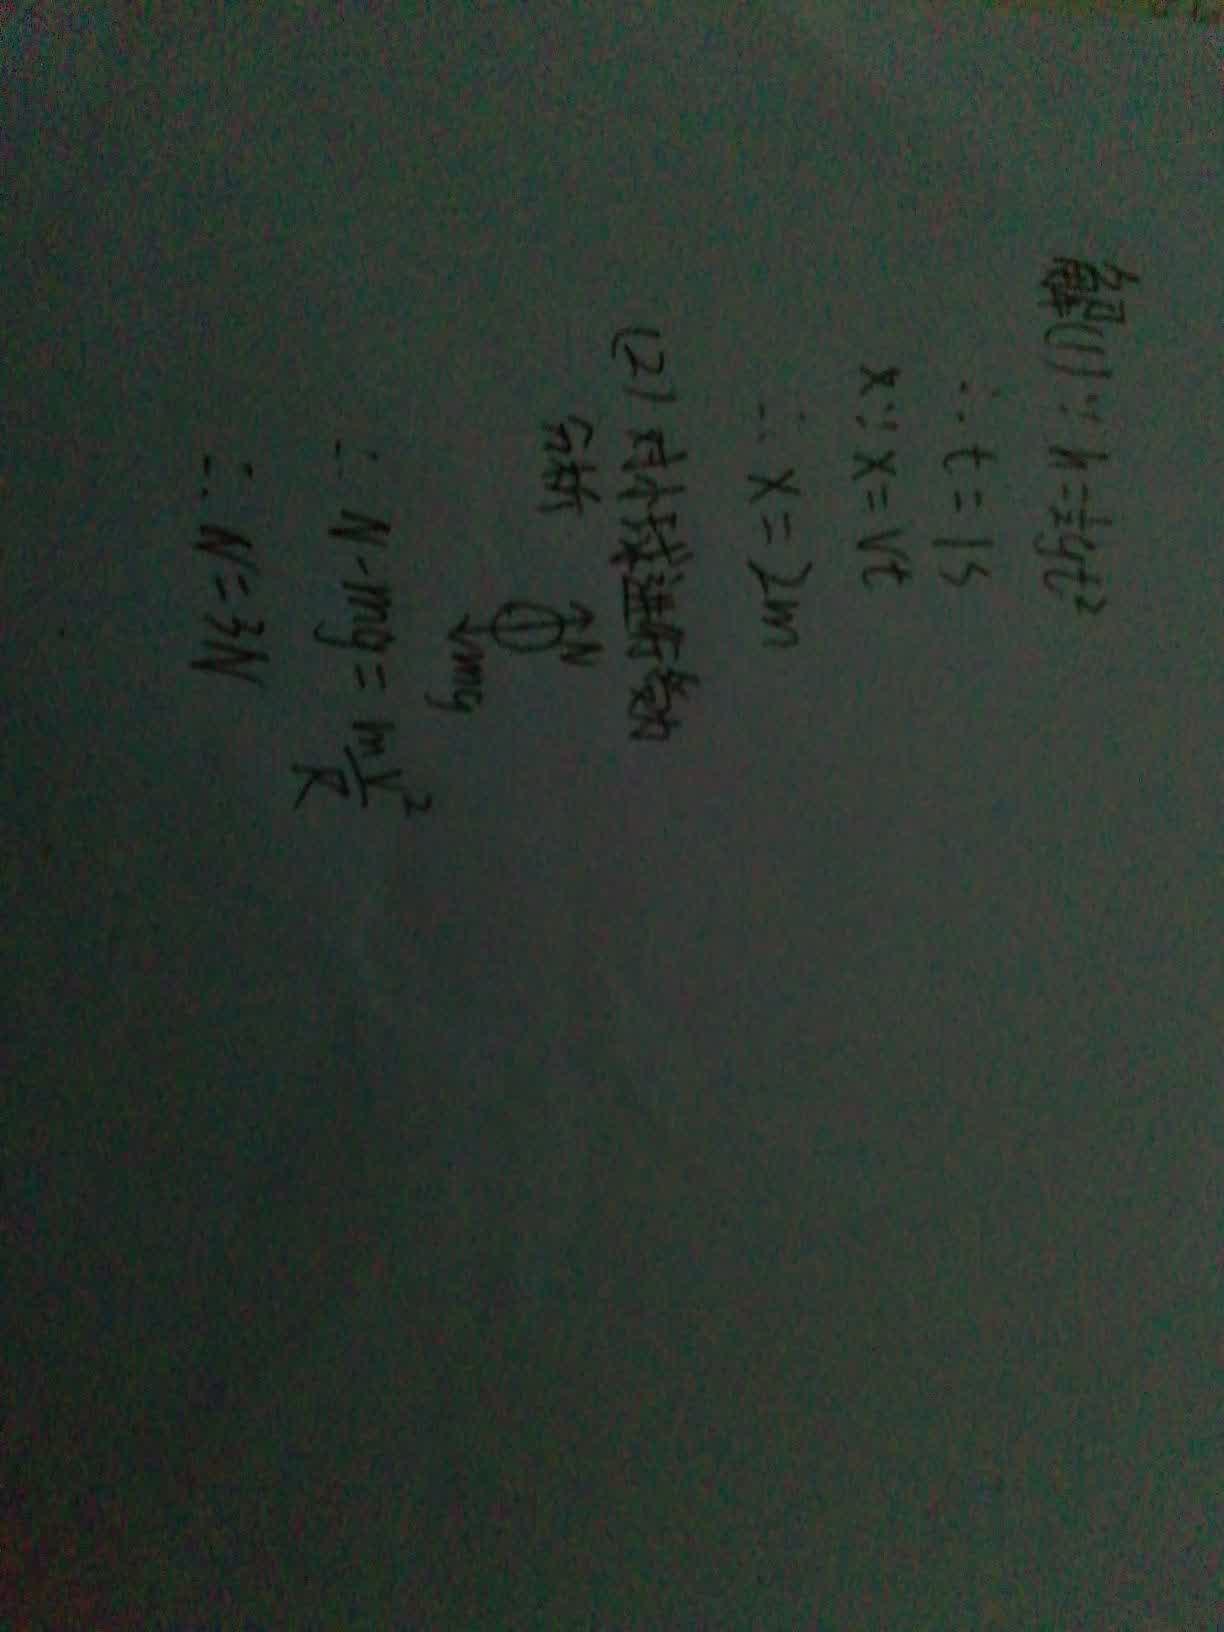 解(1)∵h=½gt²
∴t=1s
x∵x=vt
∴x=2m
(2)对小球进行受力
分析
N
mg
∴N-mg=m\frac{v²}{R}
∴N=3N